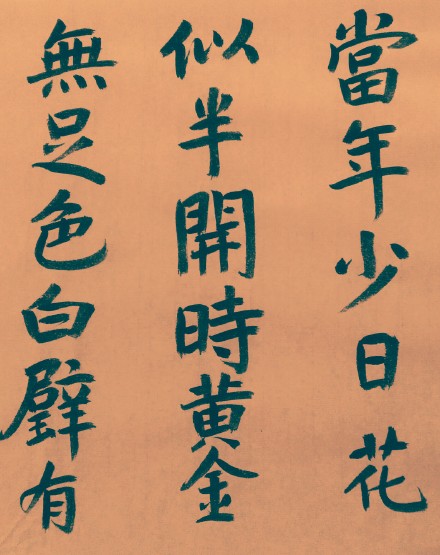 當年少日花
似半開時黄金
無足色白璧有